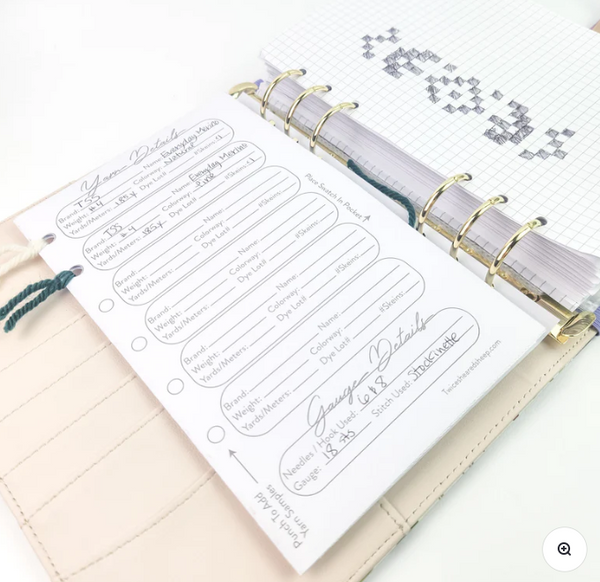 Yarn Details
Brand: TSS Name: Everyday Merino
Weight: #4 Colorway: Nutshell
Yards/Meters: 185y Dye Lot# #Skeins: 1
Brand: TSS Name: Everyday Merino
Weight: #4 Colorway: Pine
Yards/Meters: 185y Dye Lot# #Skeins: 1
Brand: Name:
Weight: Colorway:
Yards/Meters: Dye Lot# #Skeins:
Brand: Name:
Weight: Colorway:
Yards/Meters: Dye Lot# #Skeins:
Brand: Name:
Weight: Colorway:
Yards/Meters: Dye Lot# #Skeins:
Place Swatch In Pocket
Gauge Details
Needles / Hook Used: 6 & 8
Gauge: 18 sts Stitch Used: Stockinette
Twicesheeredsheep.com
Punch To Add
Yarn Samples